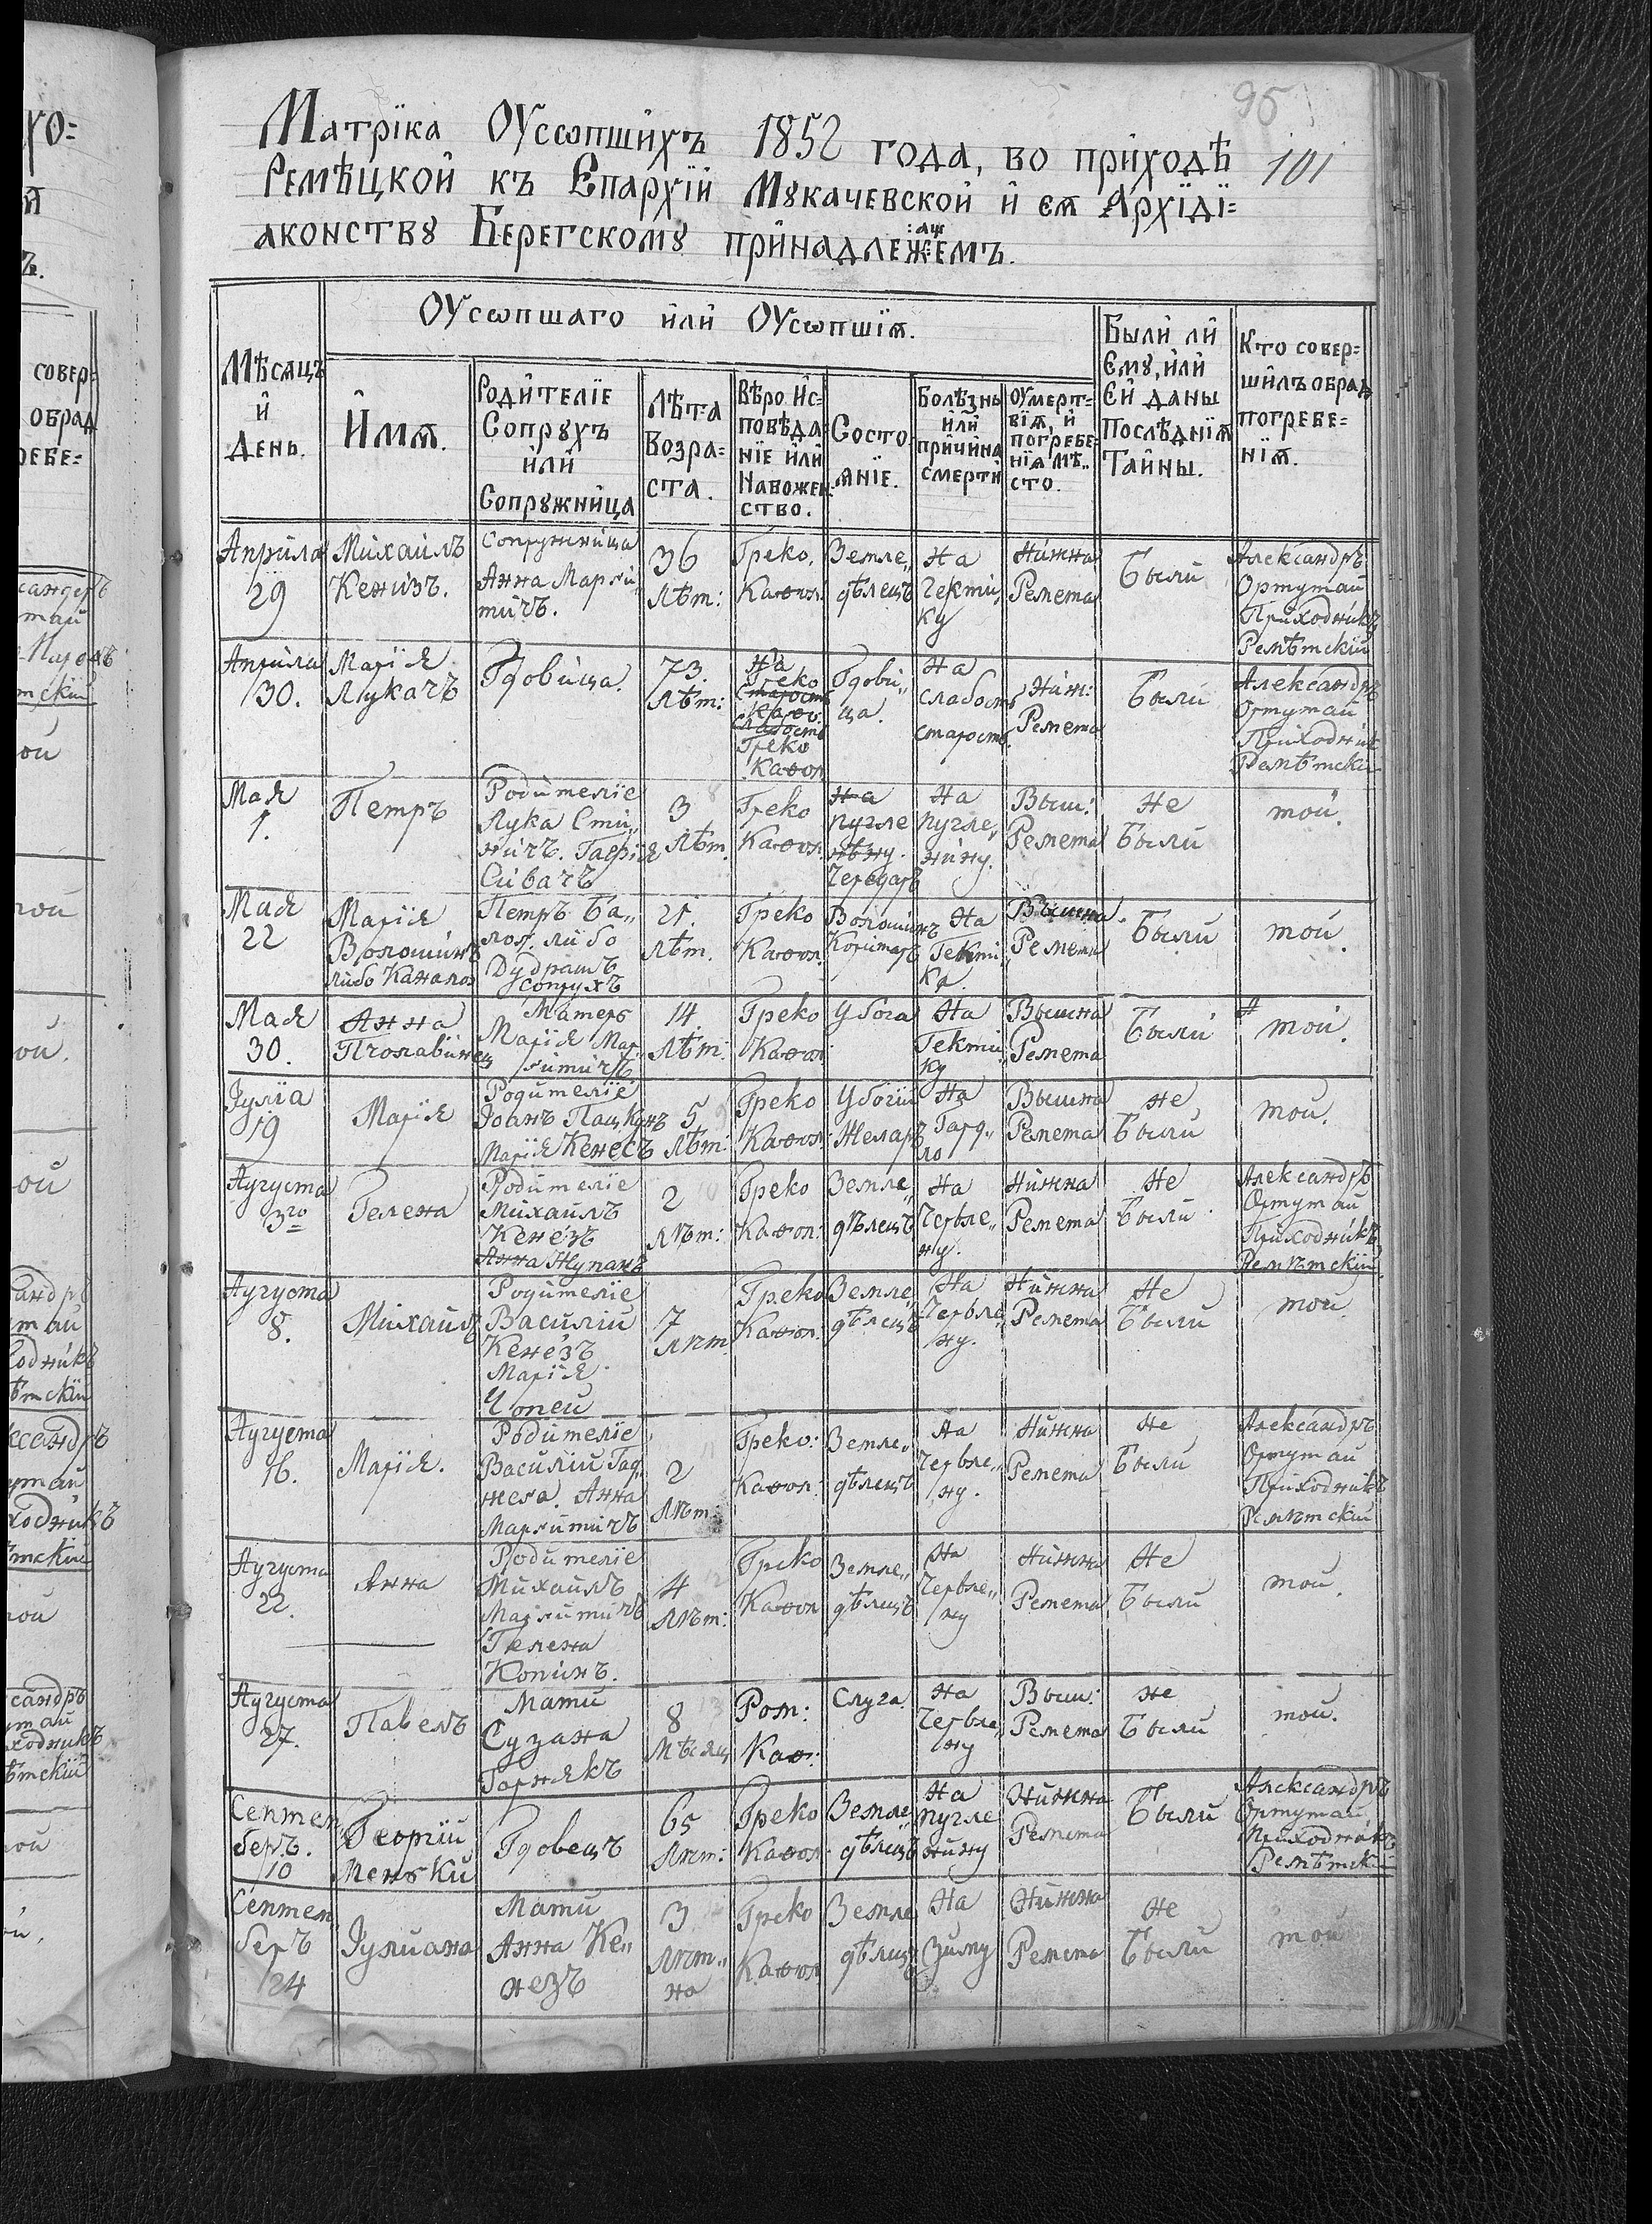 95
Матрїка Оусѡпшихъ 1852 года, во приходѣ 101
Ремѣцкой къ Епархїи Мꙋкачевской и еѧ Архїдї=
аконствꙋ Берегскомꙋ принадлежѧщемъ.
Мѣсяцъ
и
День.
Оусѡпшаго или Оусѡпшїѧ.
Имѧ.
Родителїе
Сопрꙋхъ
или
Сопрꙋжница
Лѣта
Возра=
ста.
Вѣро Ис=
повѣда
нїе или
Навожен
ство.
Состо
ѧнїе.
Болѣзнь
или
причина
смерти
Оумерт=
вїѧ, и
погребе=
нїѧ мѣ..
сто.
Были ли
Ємꙋ, или
Єй даны
Послѣднїѧ
Тайны.
Кто совер=
шилъ обрад
погребе=
нїѧ.
Априла
29
Михаилъ
Кенизъ.
Сопружница
Анна Марги
тичъ.
36
лѣт:
Греко.
Каѳол.
Земле„
дѣлецъ
На
Гектӣ
ку
Нижна
Ремета
Были
Александръ
Ортутай
Приходникъ
Ремѣтскїй
Априла
30.
Марїя
Лукачъ
Гдовица.
73.
лѣт:
На
Греко
Старость
Каѳо:
слабость
Греко
Каѳол
Гдови„
ца.
На
слабость
старость.
Ниж:
Ремета
Были
Александръ
Ортутай
Приходник
Ремѣтски
Мая
1.
Петръ
Родителїе
Лука Сти„
ничъ. Гафія
Сивачъ
3
лѣт.
Греко
Каѳол.
На
пугле
нѣну.
Чередарь
На
пугле„
нину.
Выш:
Ремета
Не
Были
той.
Мая
22
Марїя
Волошинъ
либо Канало
Петръ Ба„
лог. либо
Дудрашъ
сопрухъ
21.
лѣт.
Греко
Каѳол.
Волошинъ
Коритарь
На
Гекти„
ка.
Вышна
Ремета
Были
той.
Мая
30.
Анна
Пчолавинец
Матерь
Марїя Мар„
гитичъ
14
лѣт:
Греко
Каѳол
Убога
На
Гекти
ку
Вышна
Ремета
Были
той.
Іулїа
19
Марїя
Родителїе
Іоанъ Пацканъ
Марїя Кенесъ
5
лѣт:
Греко
Каѳол:
Убогій
Желаръ
На
Гард„
ло
Вышна
Ремета
не
Были
той.
Аугуста
3го
Гелена
Родителїе
Михаилъ
Кенéзъ
Анна Жупанъ
2
лѣт:
Греко
Каѳол:
Земле„
дѣлецъ
На
Червле„
ну.
Нижна
Ремета
Не
Были
Александръ
Ортутай
Приходникъ
Ремѣтскїй
Аугуста
8.
Михаилъ
Родителїе
Василій
Кенéзъ
Марїя
Чопей
7
лѣт
Греко
Каѳол.
Земле
дѣлецъ
На
Червле„
ну.
Нижна
Ремета
Не
Были
той
Аугуста
16.
Марїя.
Родителїе
Василій Гад„
жега. Анна
Маргитичъ
2
лѣт:
Греко:
Каѳол:
Земле„
дѣлецъ
На
Червле„
ну.
Нижна
Ремета
не
Были
Александръ
Ортутай
Приходникъ
Ремѣтскїй
Аугуста
22.
Анна
Родителїе
Михаилъ
Маргитичъ
Гелена
Копинъ.
4
лѣт:
Греко
Каѳол
Земле„
дѣлецъ
На
Червле„
ну
Нижна
Ремета
Не
Были
той.
Аугуста
27.
Павелъ
Мати
Сузана
Горнякъ
8
мѣсяц
Ром:
Каѳ:
Слуга
На
Червле„
ну
Выш:
Ремета
не
Были
той.
Септем„
беръ.
10
Георгїй
Менькӣ
Гдовецъ
65
лѣт:
Греко
Каѳол
Земле„
дѣлецъ
На
пугле
нину
Нижна
Ремета
Были
Александръ
Ортутай
Приходникъ
Ремѣтск
Септем„
беръ
24
Іуліана
Мати
Анна Ке„
незъ
3
лѣт„
на
Греко
Каѳол
Земле
дѣлец
На
Зиму
Нижна
Ремета
не
Были
той